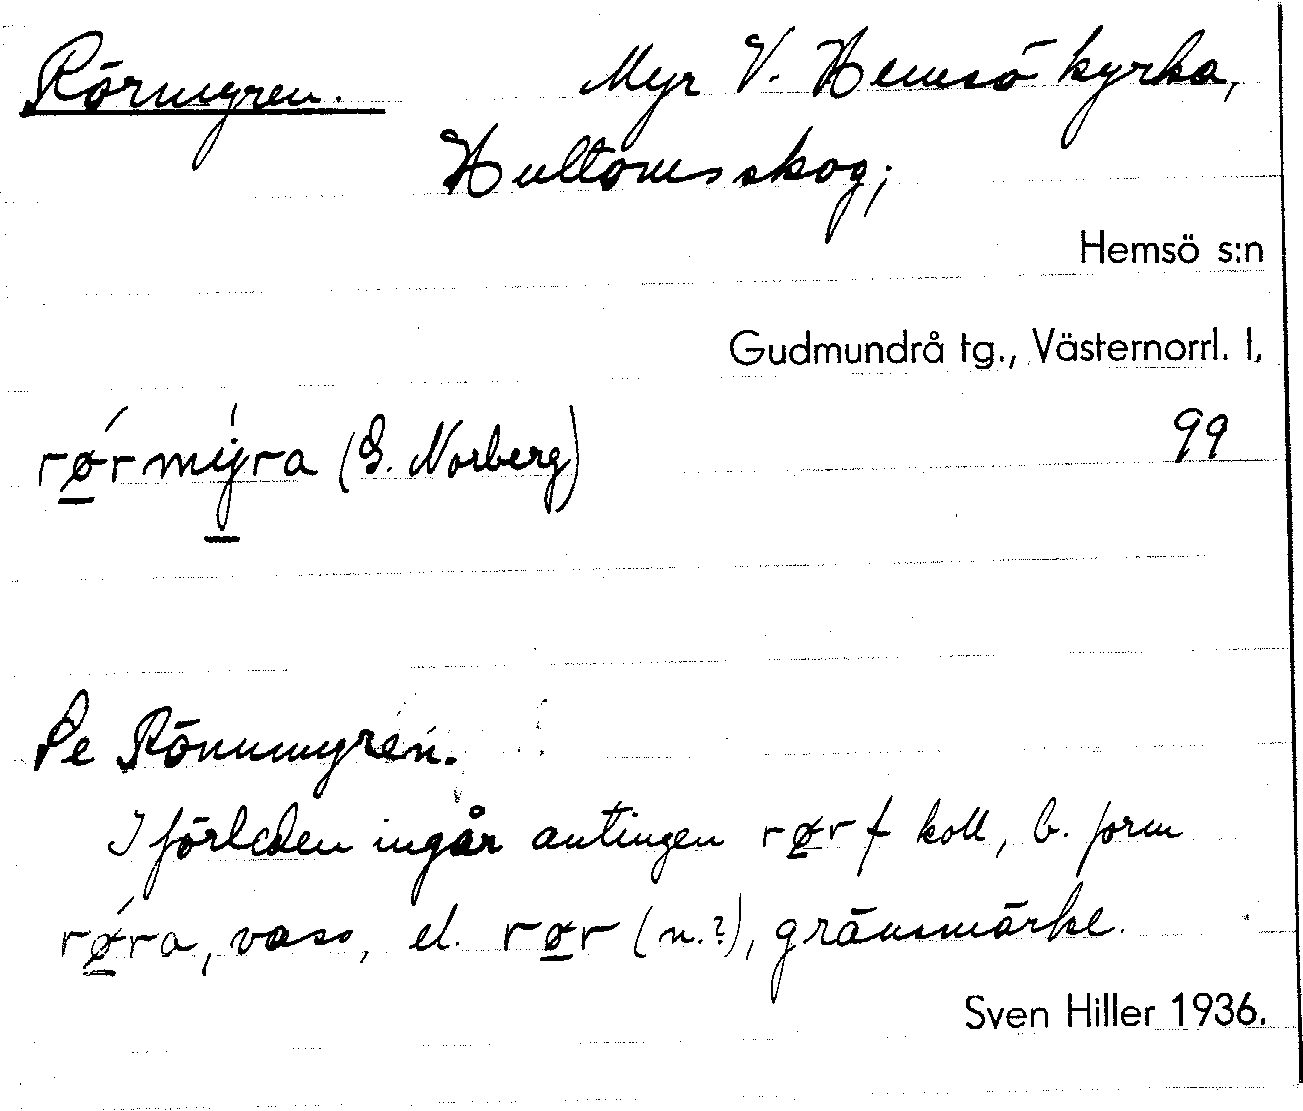 Rörmyren. Myr V. Hemsö kyrka,
Hultomsskog;
Hemsö s:n
Gudmundrå tg., Västernorrl. l,
rǿ̱rmý̱ra (G. Norberg) 99
Se Rönnmyren.
I förleden ingår antingen rø̱r f koll, b. form
rǿ̱ra, vass, el. rø̱r (n.?), gränsmärke.
Sven Hiller 1936.